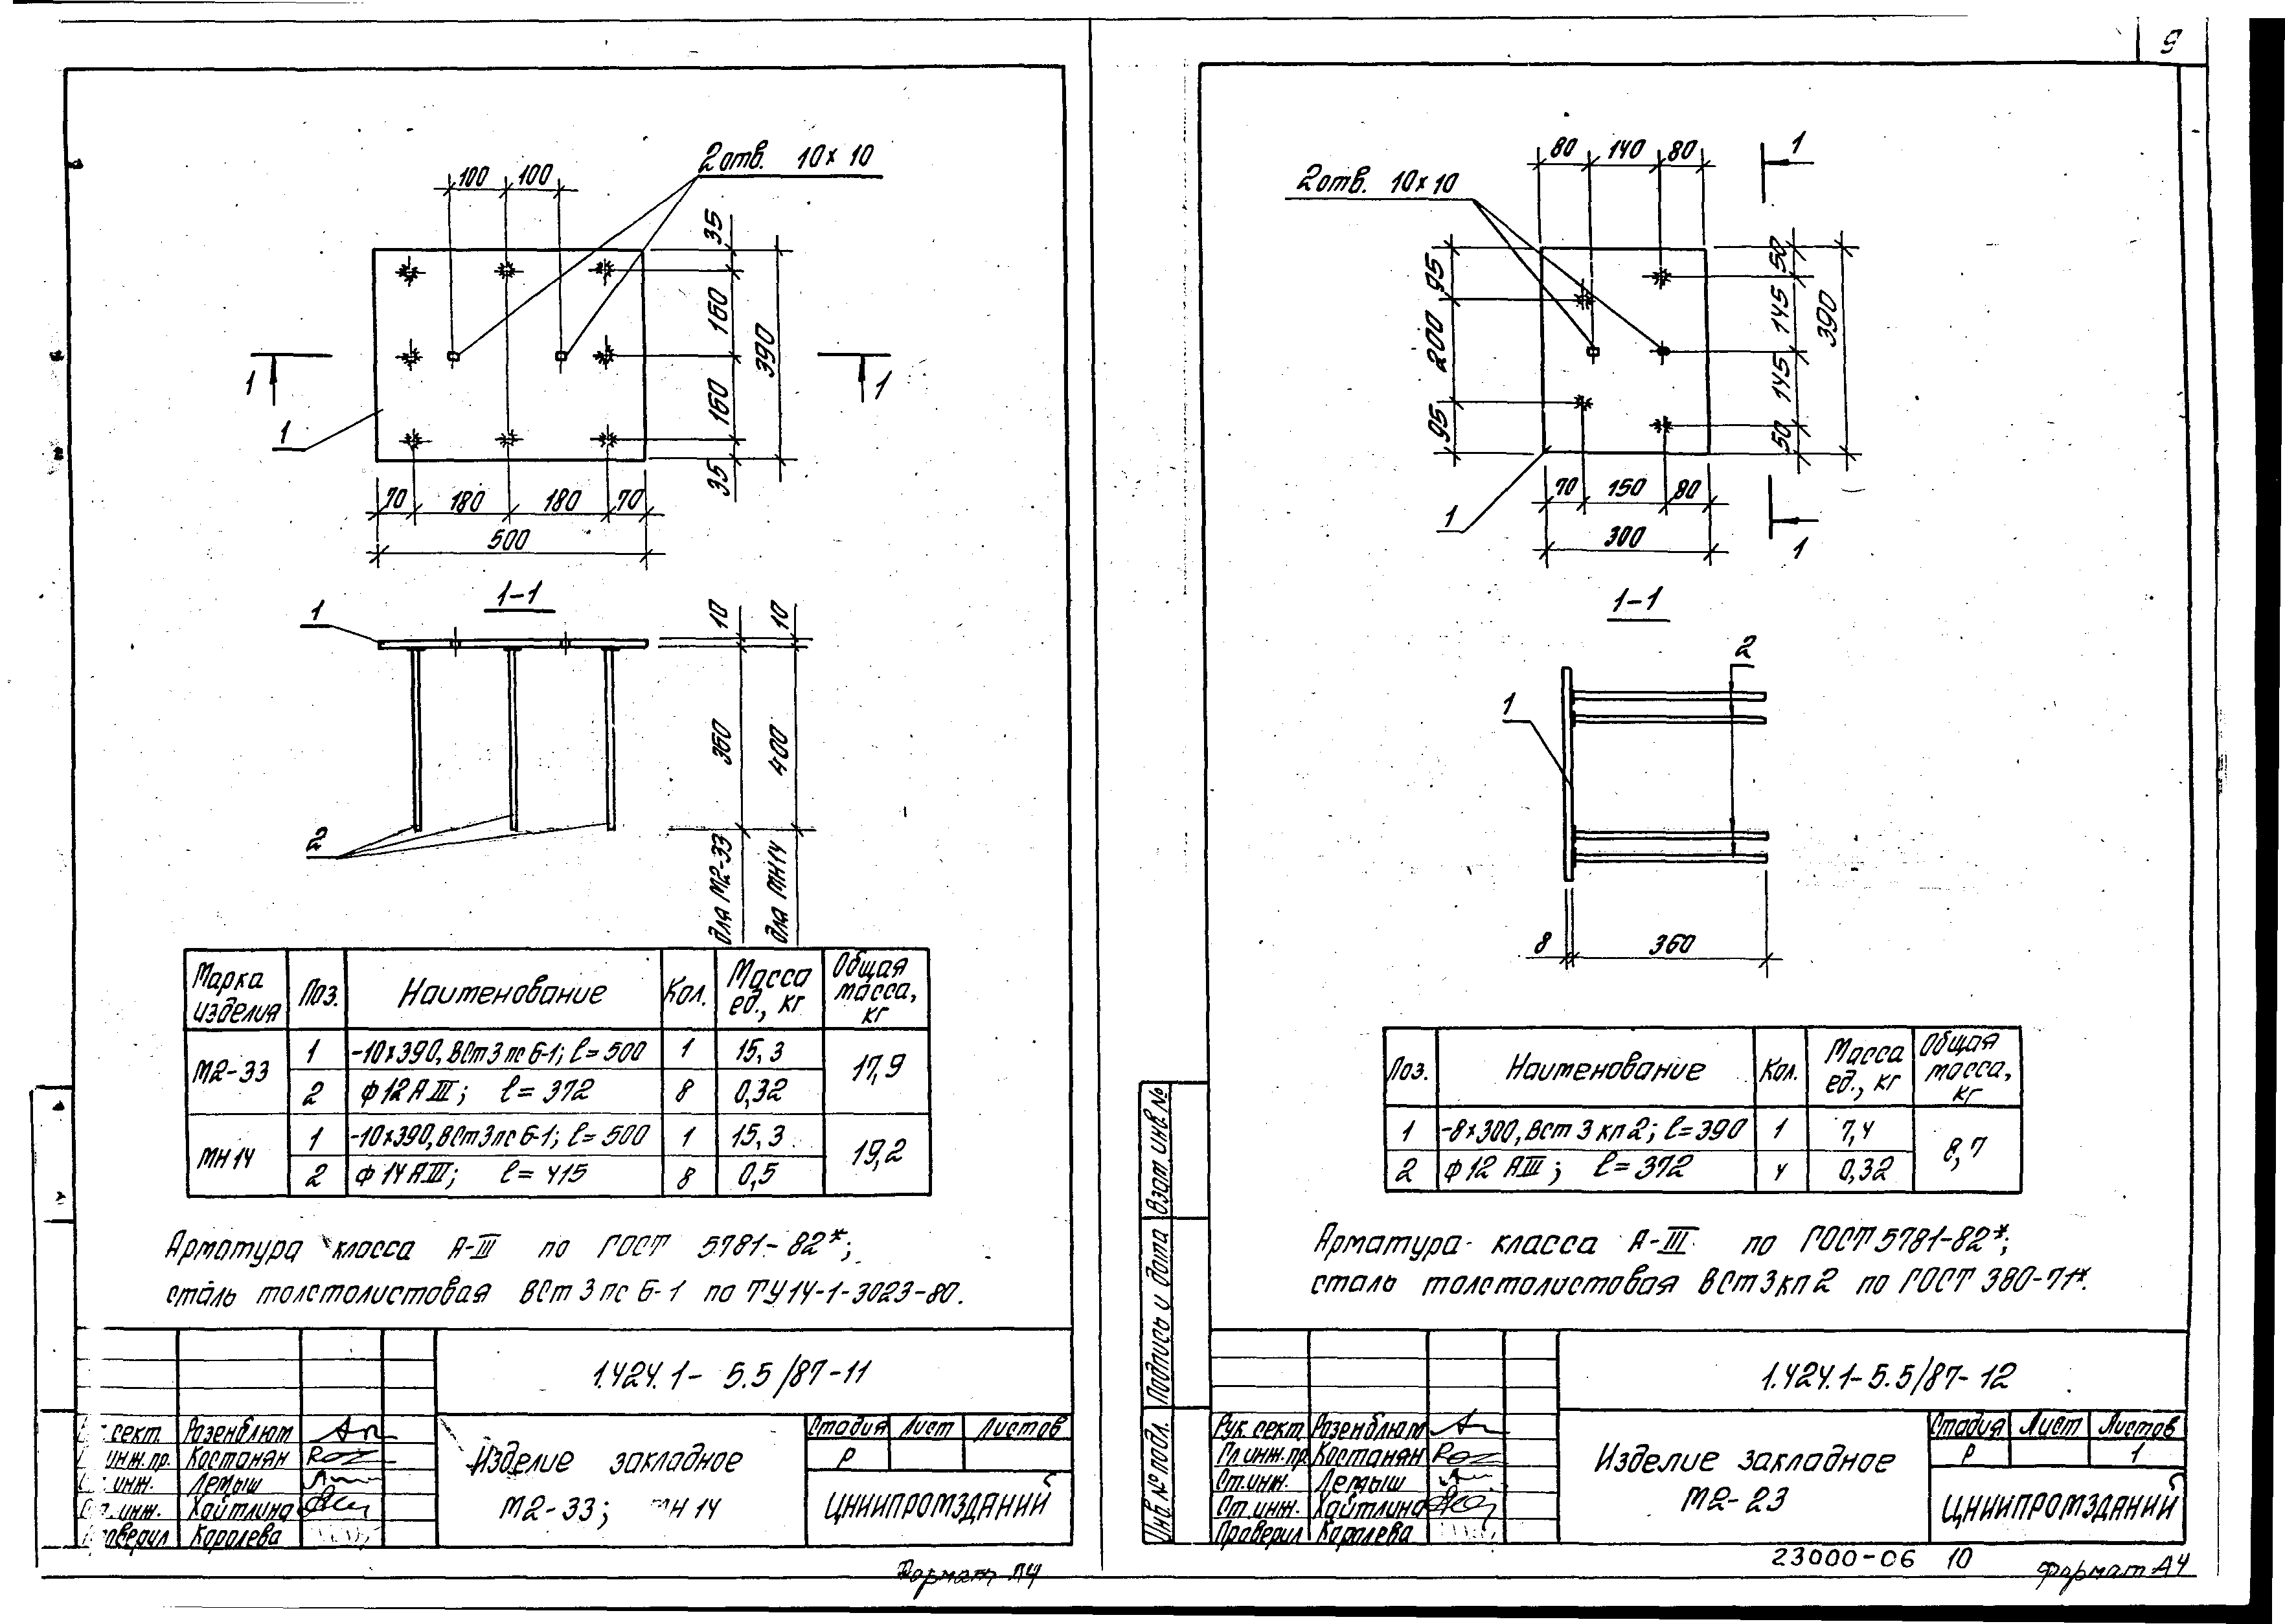 9
2 отв. 10×10
100 100
35
160
390
160
35
1 1
1
70 180 180 70
500
1-1
1
10 10
360 400
2
для М2-33
для МН14
Марка изделия Поз. Наименование Кол. Масса ед., кг Общая масса, кг
М2-33 1 -10×390, ВСт3пс6-1; ℓ=500 1 15,3 17,9
2 ф12АIII; ℓ=372 8 0,32
МН14 1 -10×390, ВСт3пс6-1; ℓ=500 1 15,3 19,2
2 ф14АIII; ℓ=415 8 0,5
Арматура класса А-III по ГОСТ 5781-82*;
сталь толстолистовая ВСт3пс6-1 по ТУ14-1-3023-80.
1.424.1-5.5/87-11
сект. Розенблюм
инж.пр. Костанян
инж. Лемыш
инж. Хайтлина
Королева
Изделие закладное
М2-33; МН14
Стадия Лист Листов
Р
ЦНИИПРОМЗДАНИЙ
Формат А4
80 140 80
1
2 отв. 10×10
95
200
95
50
145
390
145
50
1
70 150 80
300
1
1-1
2
1
8 360
Поз. Наименование Кол. Масса ед., кг Общая масса, кг
1 -8×300, ВСт3кп2; ℓ=390 1 7,4 8,7
2 ф12 АIII; ℓ=372 4 0,32
Арматура класса А-III по ГОСТ 5781-82*;
сталь толстолистовая ВСт3кп2 по ГОСТ 380-71*.
Инв. № подл. Подпись и дата Взам. инв. №
1.424.1-5.5/87-12
Рук. сект. Розенблюм
Гл. инж. пр. Костанян
Ст. инж. Лемыш
Ст. инж. Хайтлина
Проверил Королева
Изделие закладное
М2-23
Стадия Лист Листов
Р 1
ЦНИИПРОМЗДАНИЙ
23000-06 10
Формат А4